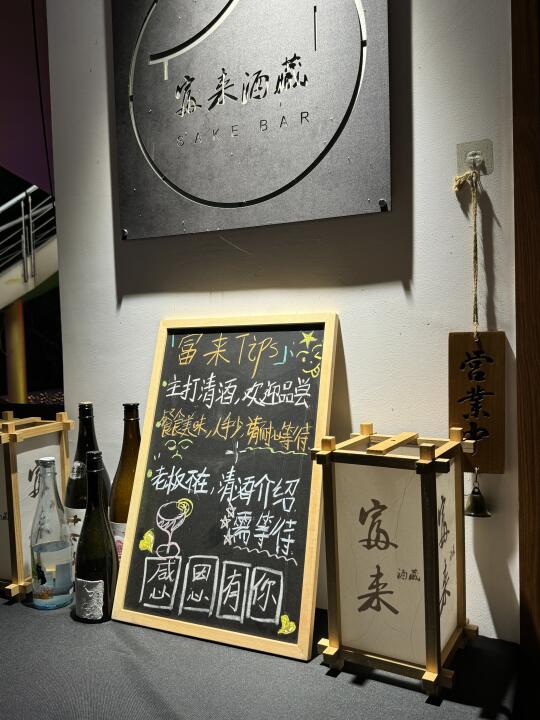 富来酒藏
SAKE BAR
富来Tips
主打清酒,欢迎品尝
餐食美味,人手少,请耐心等待
老板在,清酒介绍
需等待
感恩有你
営業中
富来
酒藏
富来